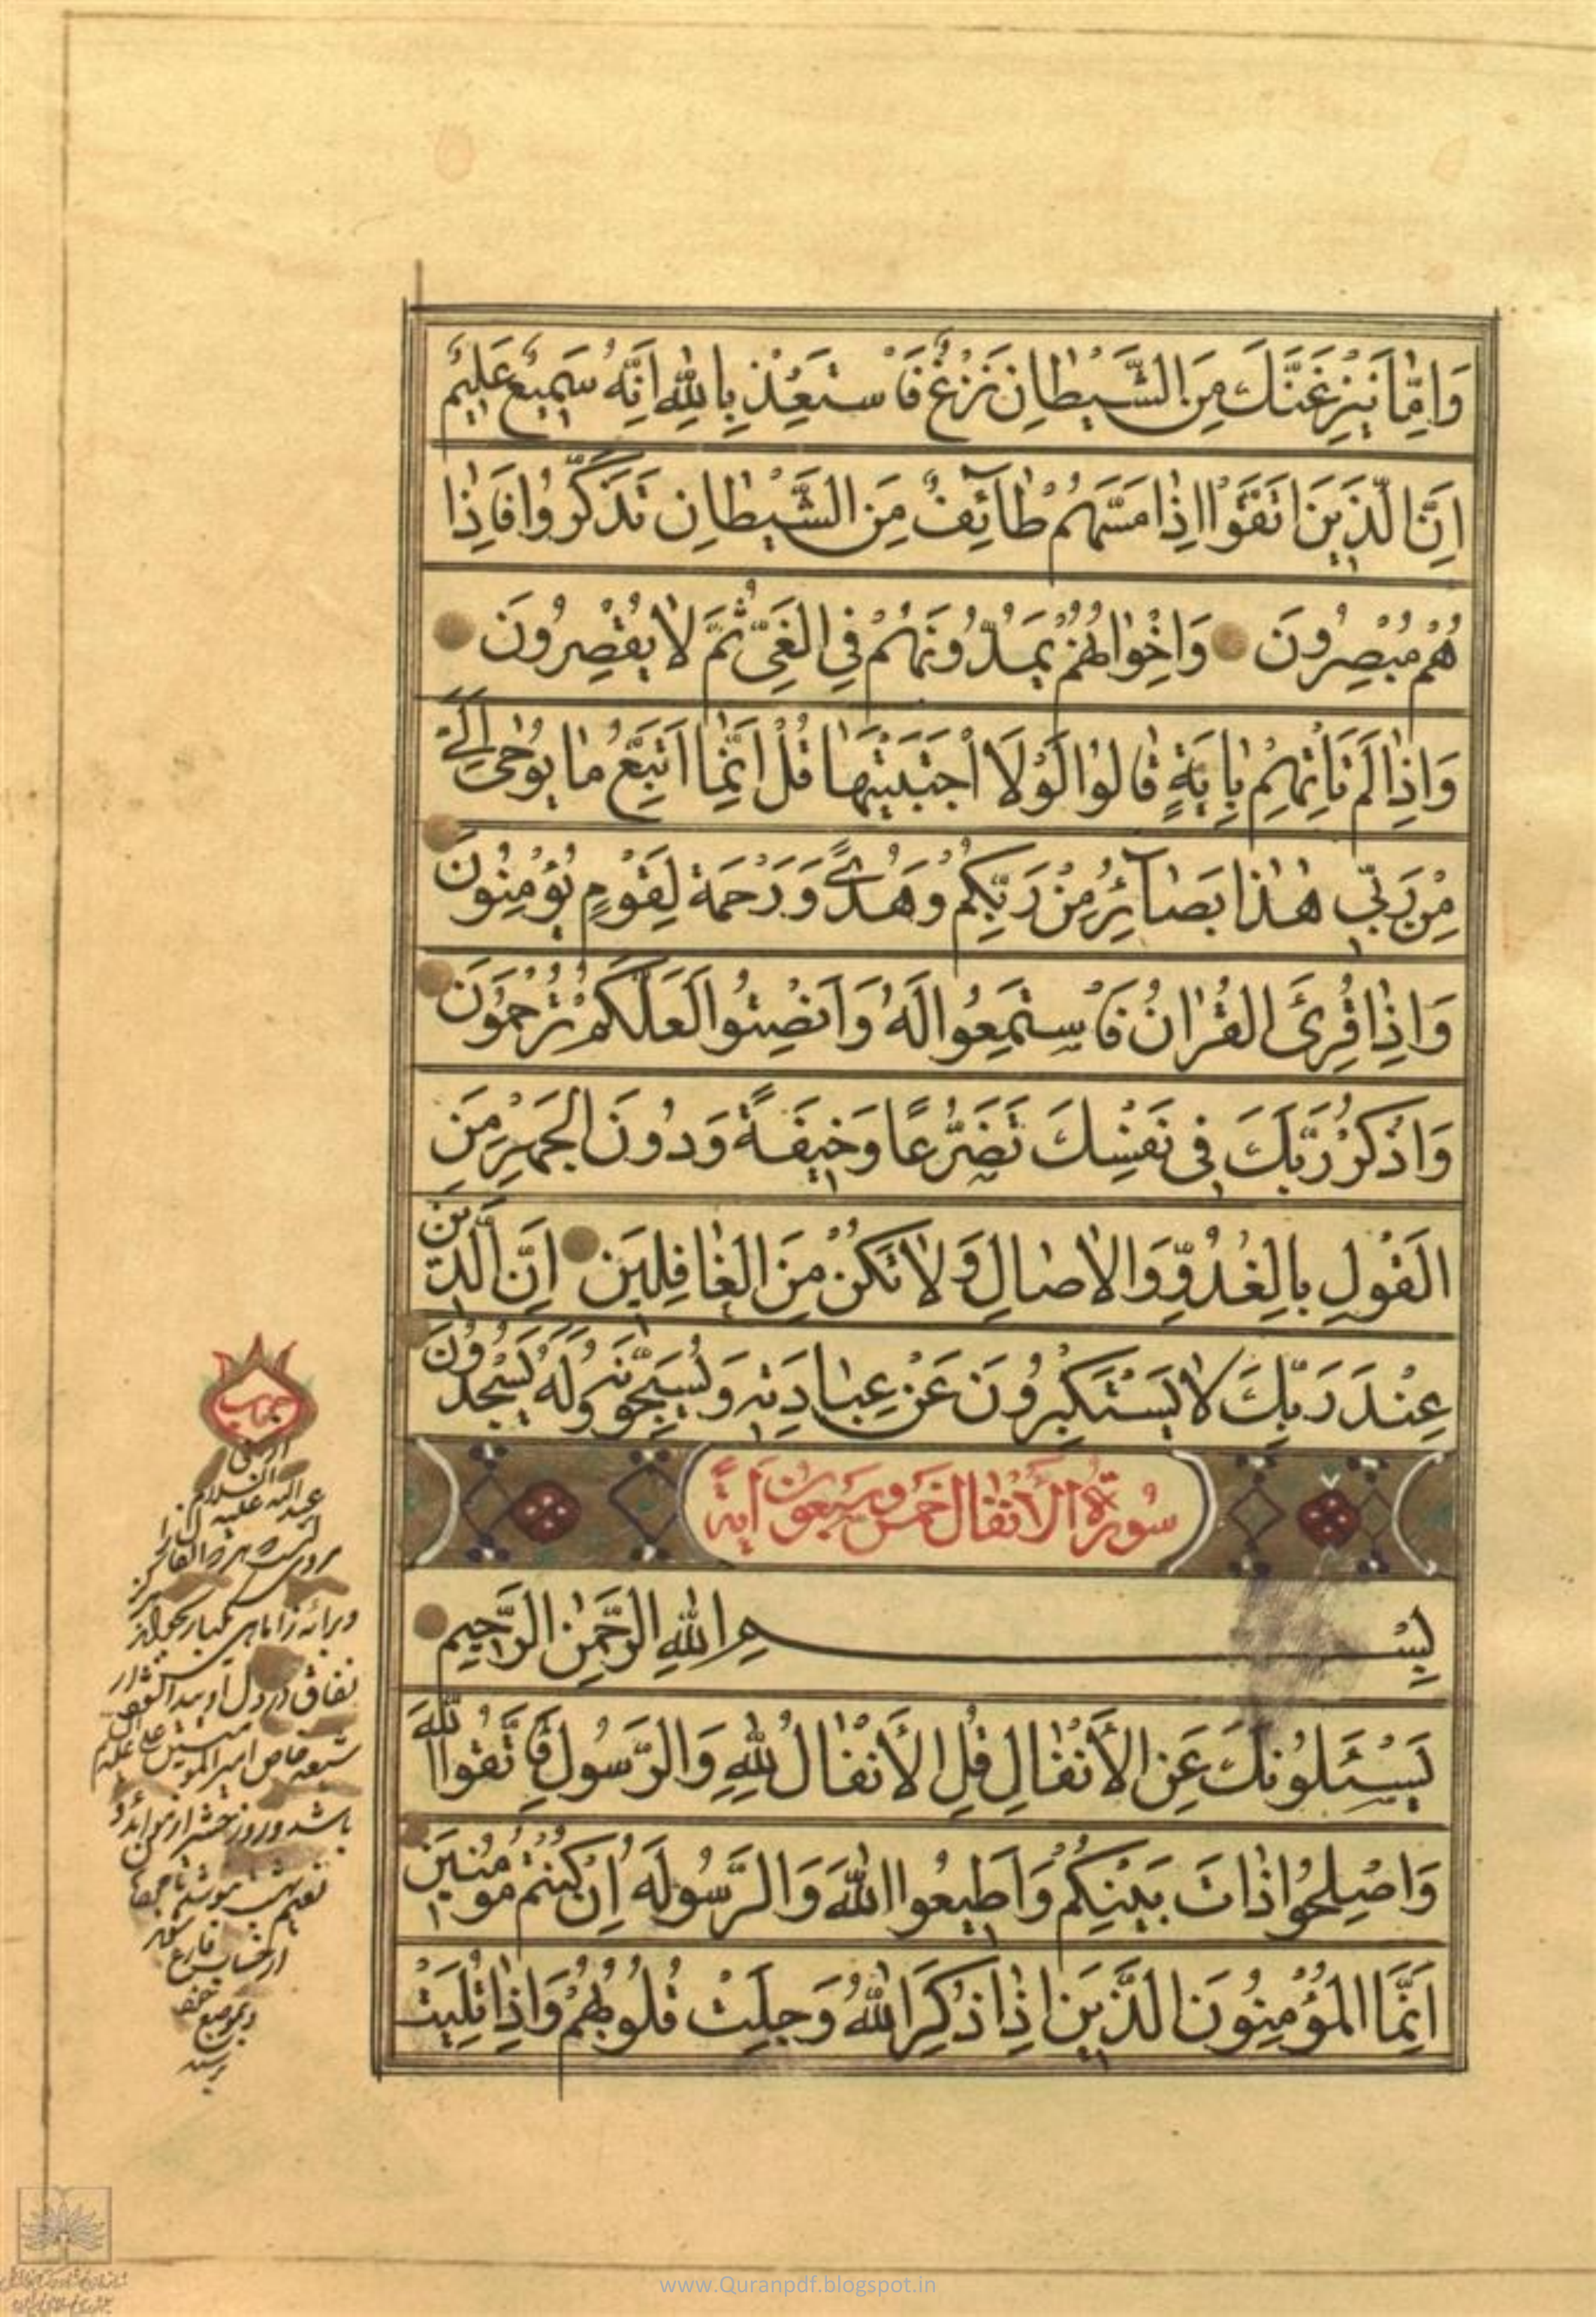 وَاِمّٰا يَنْزِغَنَّكَ مِنَ الشَّيْطٰانِ نَزْغٌ فَاسْتَعِذْ بِاللّٰهِ اِنَّهُ سَمِيعٌ عَلِيمٌ
اِنَّ الَّذِينَ اتَّقَوْا اِذٰا مَسَّهُمْ طٰآئِفٌ مِنَ الشَّيْطٰانِ تَذَكَّرُوا فَاِذٰا
هُمْ مُبْصِرُونَ وَاِخْوٰانُهُمْ يَمُدُّونَهُمْ فِي الْغَيِّ ثُمَّ لٰا يُقْصِرُونَ
وَاِذٰا لَمْ تَأْتِهِمْ بِاٰيَةٍ قٰالُوا لَوْلَا اجْتَبَيْتَهٰا قُلْ اِنَّمٰا اَتَّبِعُ مٰا يُوحٰى اِلَيَّ
مِنْ رَبّي هٰذٰا بَصٰآئِرُ مِنْ رَبِّكُمْ وَهُدًى وَرَحْمَة لِقَوْمٍ يُؤْمِنُونَ
وَاِذٰا قُرِئَ الْقُرْاٰنُ فَاسْتَمِعُوا لَهُ وَاَنْصِتُوا لَعَلَّكُمْ تُرْحَمُونَ
وَاذْكُرْ رَبَّكَ فِي نَفْسِكَ تَضَرُّعًا وَخِيفَةً وَدُونَ الْجَهْرِ مِنَ
الْقَوْلِ بِالْغُدُوِّ وَالْاٰصٰالِ وَلٰا تَكُنْ مِنَ الْغٰافِلِينَ اِنَّ الَّذِينَ
عِنْدَ رَبِّكَ لٰا يَسْتَكْبِرُونَ عَنْ عِبٰادَتِهِ وَيُسَبِّحُونَهُ وَلَهُ يَسْجُدُونَ
سُورَةُ الْاَنْفٰال خَمْس وسَبْعُونَ اٰيَةً
بِسْمِ اللّٰهِ الرَّحْمٰنِ الرَّحِيمِ
يَسْئَلُونَكَ عَنِ الْأَنْفٰالِ قُلِ الْأَنْفٰالُ لِلّٰهِ وَالرَّسُولِ فَاتَّقُوا اللّٰهَ
وَاَصْلِحُوا ذٰاتَ بَيْنِكُمْ وَاَطِيعُوا اللّٰهَ وَالرَّسُولَهُ اِنْ كُنْتُمْ مُومِنِينَ
اِنَّمَا الْمُؤْمِنُونَ الَّذِينَ اِذٰا ذُكِرَ اللّٰهُ وَجِلَتْ قُلُوبُهُمْ وَاِذٰا تُلِيَتْ
عبد الله عليه السلام
نفاق در دل او
شيعه خاص امير المومنين علي عليه السلام
باشد و روز حشر از
از حساب فارغ
www.Quranpdf.blogspot.in